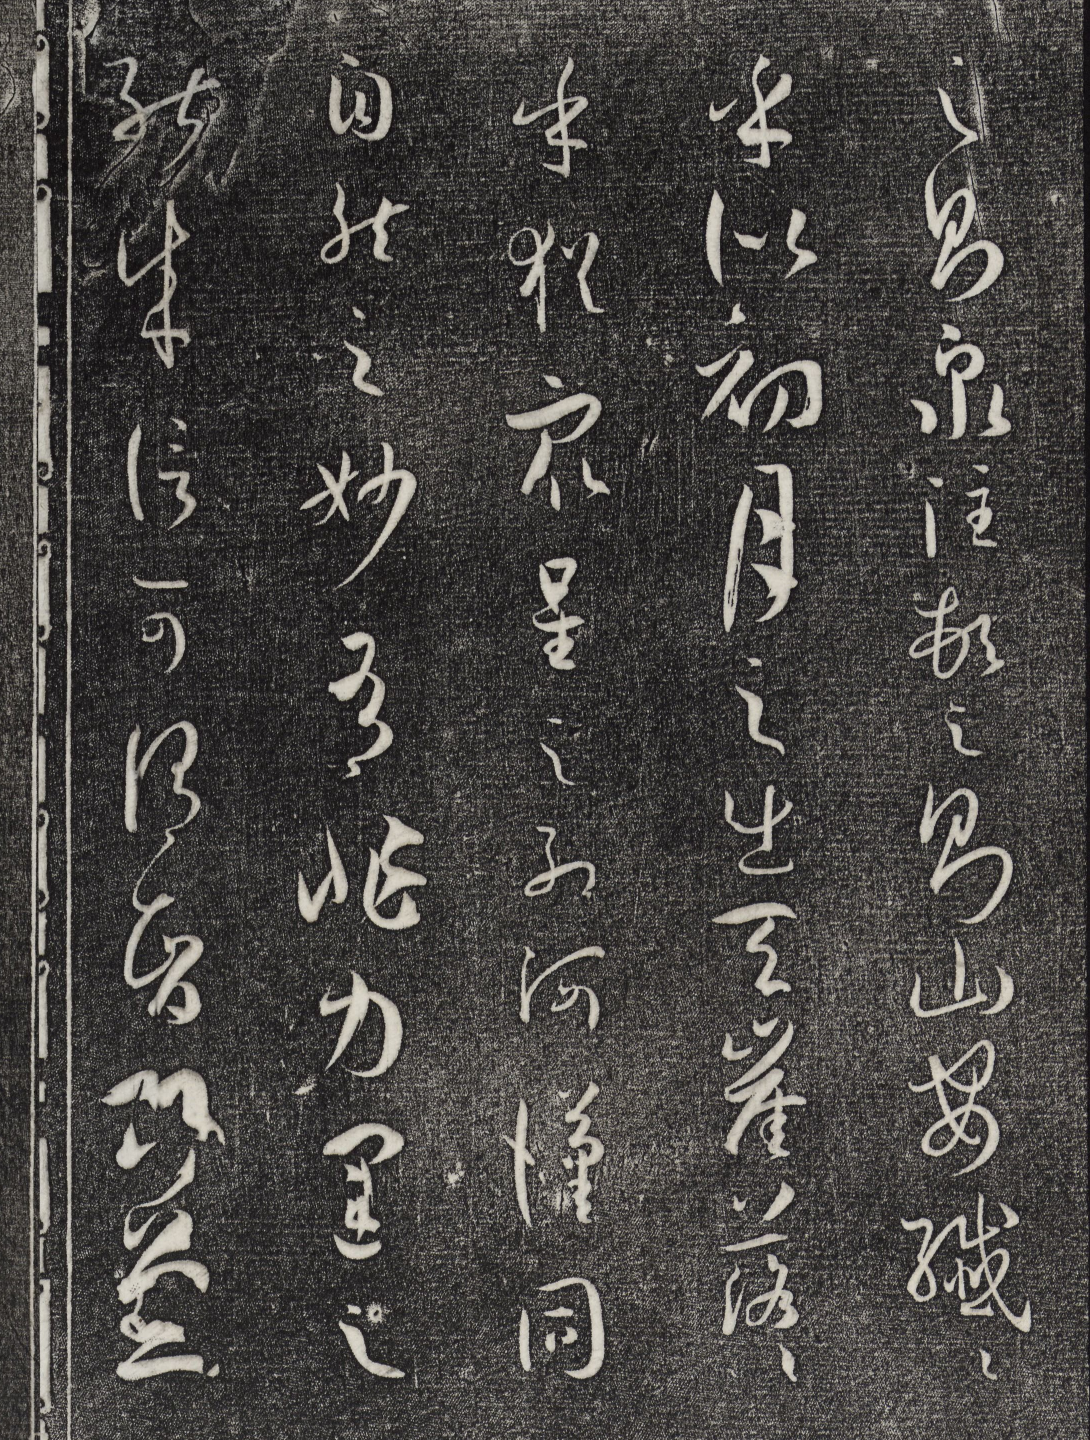 之則泉注頓之則山安纖〻
乎似初月之出天崖落〻
乎猶眾星之列河漢同
自然之妙有非力運之
能成信可謂智巧兼